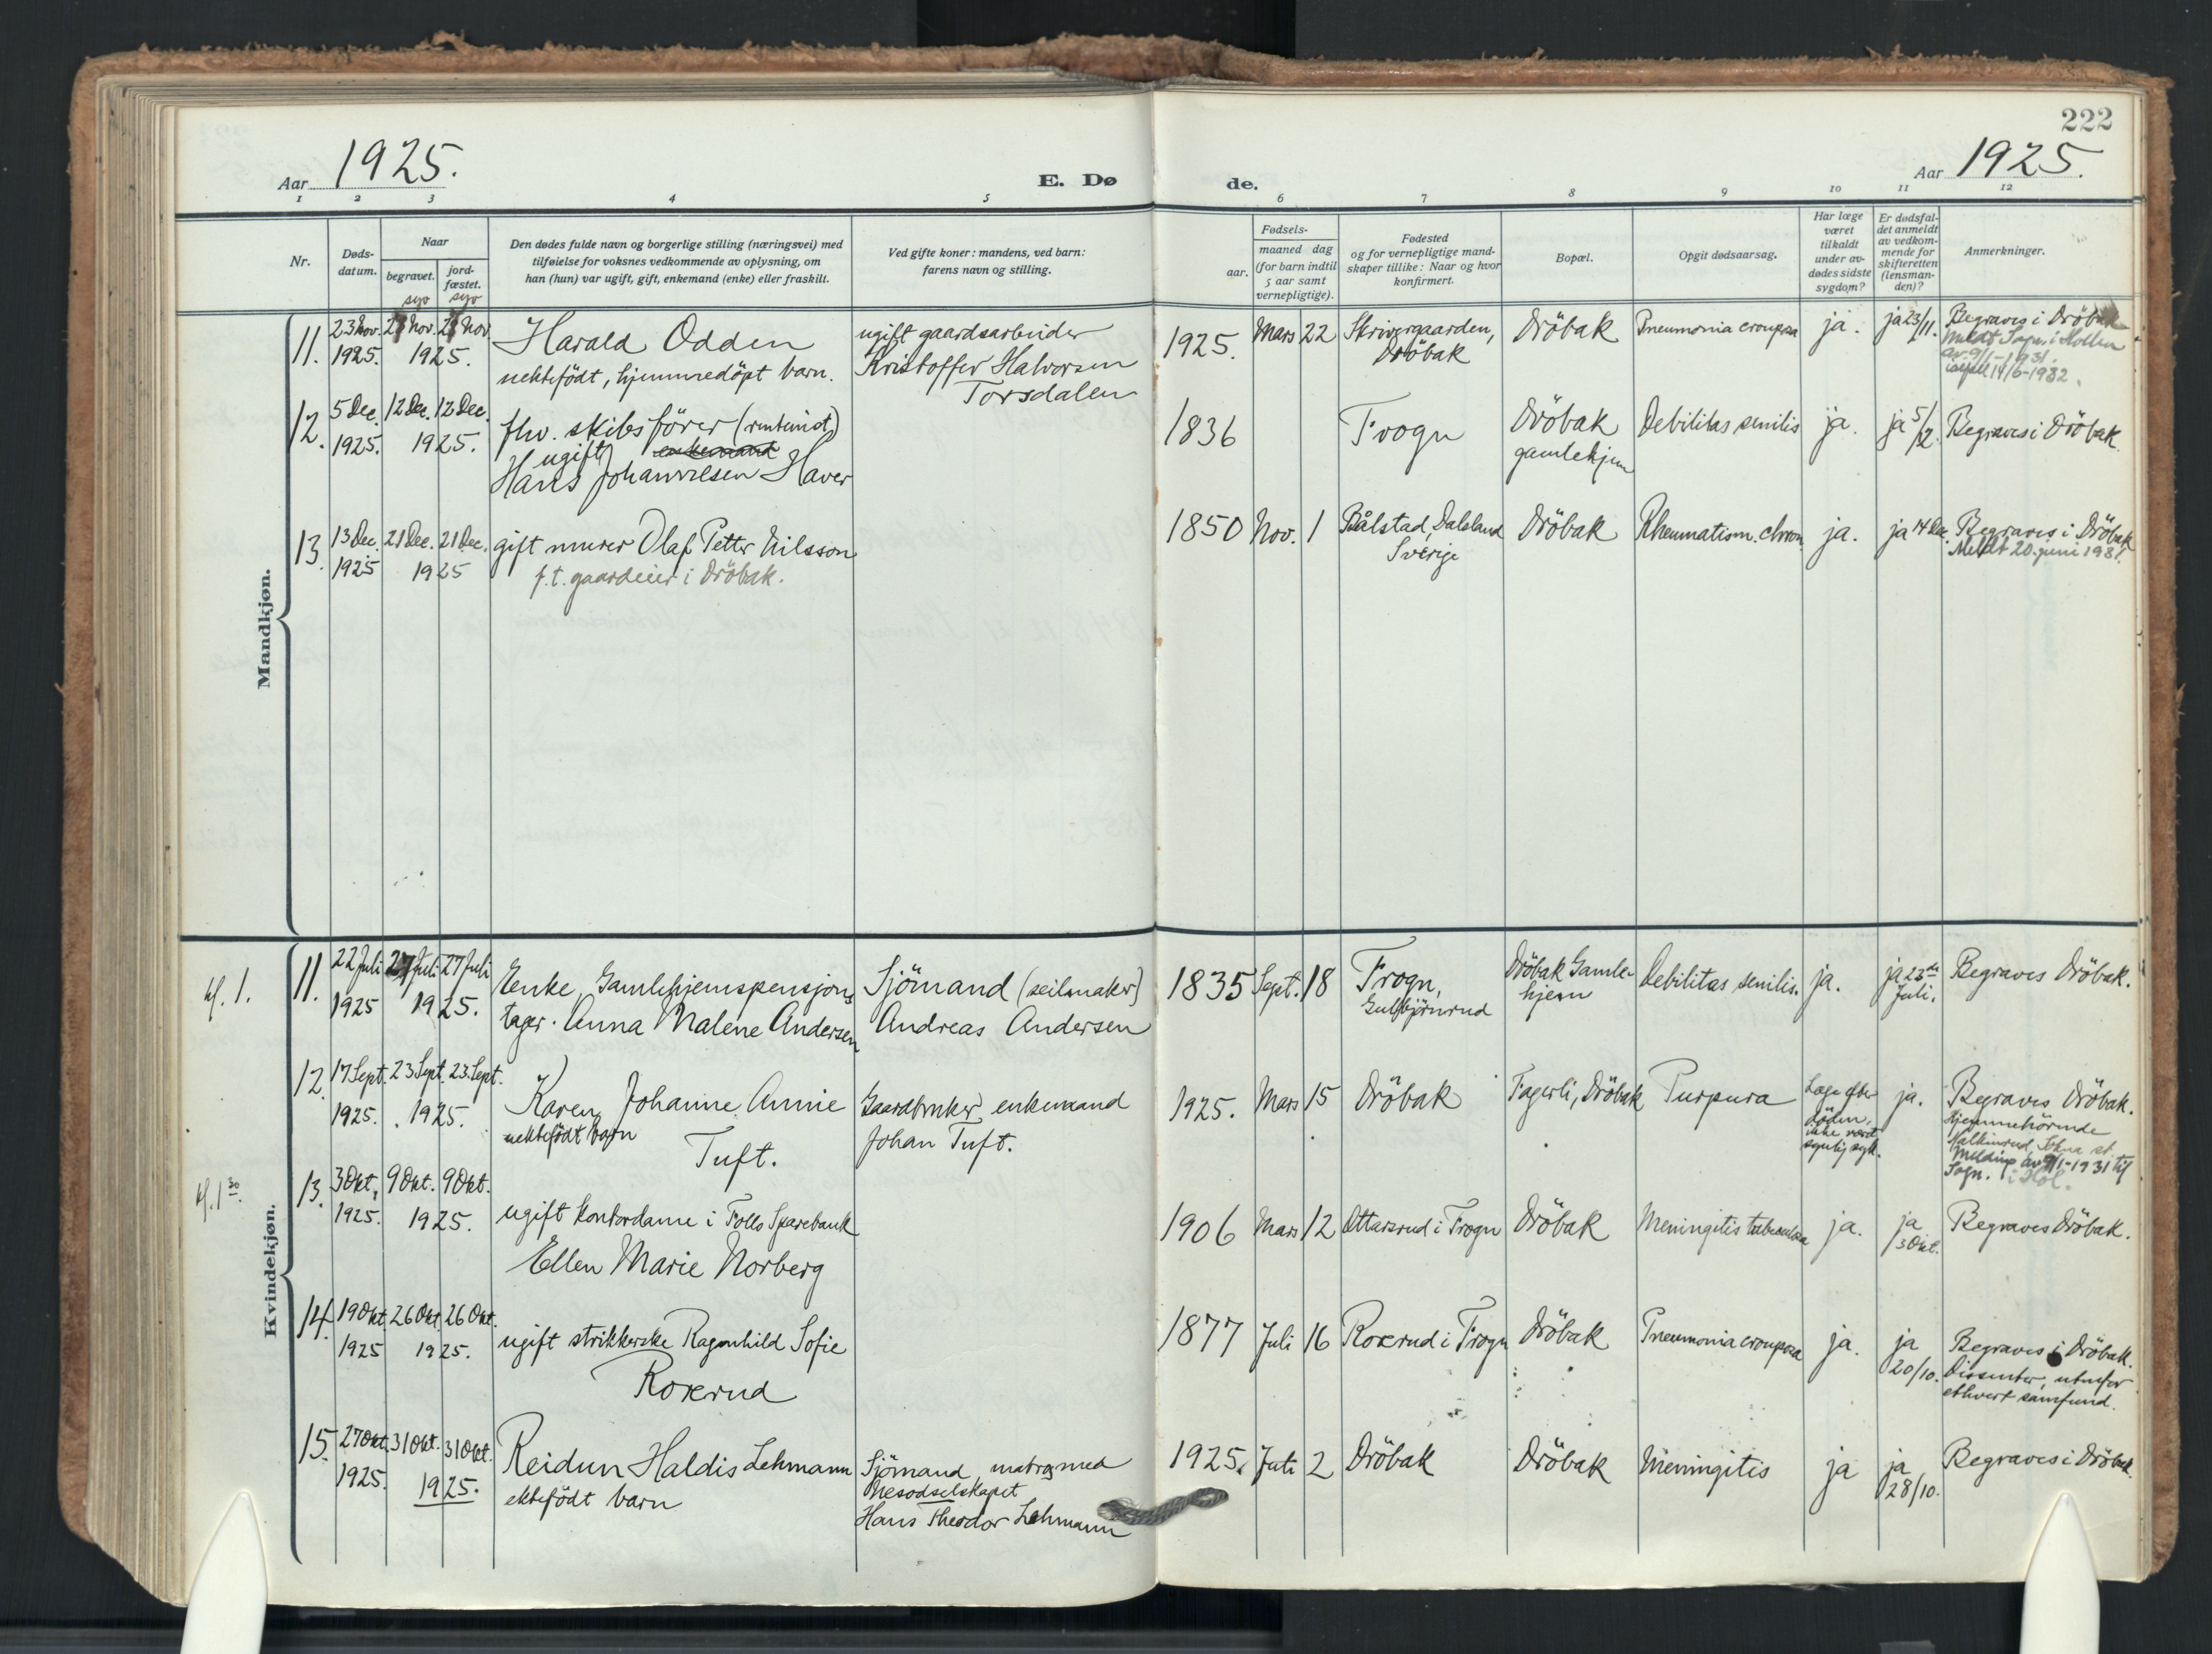 222
Aar 1925.
E. Dø
de.
Aar 1925.
1 2 3 4 5 6 7 8 9 10 11 12
Nr.
Døds-
datum.
Naar
begravet.
jord-
fæstet.
syv syv
Den dødes fulde navn og borgerlige stilling (næringsvei) med
tilføielse for voksnes vedkommende av oplysning, om
han (hun) var ugift, gift, enkemand (enke) eller fraskilt.
Ved gifte koner: mandens, ved barn:
farens navn og stilling.
Fødsels-
aar.
maaned dag
(for barn indtil
5 aar samt
vernepligtige).
Fødested
og for vernepligtige mand-
skaper tillike: Naar og hvor
konfirmert.
Bopæl.
Opgit dødsaarsag.
Har læge
været
tilkaldt
under av-
dødes sidste
sygdom?
Er dødsfal-
det anmeldt
av vedkom-
mende for
skifteretten
(lensman-
den)?
Anmerkninger.
Mandkjøn.
11.
23 Nov.
1925.
Nov. Nov
1925.
Harald Odden
uektefödt, hjemmedöpt barn.
ugift gaardsarbeider
Kristoffer Halvorsen
Torsdalen
1925.
Mars 22
Skrivergaarden,
Dröbak
Dröbak
Pneumonia crouposa
ja.
ja 23/11.
Begraves i Dröbak
Meldt Sogn i Hollen
av 9/1-1931.
14/6-1932.
12.
5 Dec.
1925.
12 Dec. 12 Dec.
1925.
fhv. skibsförer (rentenist)
ugift enkemand
Hans Johannesen Haver
1836
Frogn
Dröbak
gamlehjem
Debilitas senilis
ja.
ja 5/12.
Begraves i Dröbak.
13.
13 Dec.
1925
21 Dec. 21 Dec.
1925
gift murer Olaf Petter Nilsson
f.t. gaardeier i Dröbak.
1850 Nov. 1
Bålstad, Dalsland
Sverige
Dröbak
Rheumatism. chron.
ja.
ja 14 Dec.
Begraves i Dröbak
Meldt 20. juni 1981.
Kvindekjøn.
kl. 1.
11.
22 Juli
1925
27 Juli 27 Juli
1925.
Enke, Gamlehjemspensjons
tager. Anna Malene Andersen
Sjömand (seilmaker)
Andreas Andersen
1835 Sept. 18
Frogn,
Gulbjörnrud
Dröbak Gamle-
hjem
Debilitas senilis.
ja.
ja 23de
Juli.
Begraves Dröbak.
12.
17 Sept.
1925.
23 Sept. 23. Sept.
1925.
Karen Johanne Annie
uektefödt barn
Tuft.
Gaardbruker, enkemand
Johan Tuft.
1925. Mars 15
Dröbak
Fagerli, Dröbak
Purpura
Læge efter
döden,
ikke vært
synlig syk.
ja.
Begraves Dröbak.
Hjemmehörende
Melding av 9/1-1931 til
Sogn. i Hol.
kl. 1 30
13.
3 Okt.
1925.
9 Okt. 9 Okt.
1925.
ugift kontordame i Follo Sparebank
Ellen Marie Norberg
1906 Mars 12
Ottarsrud i Frogn
Dröbak
Meningitis tuberculosa
ja.
ja
3 Okt.
Begraves Dröbak.
14.
19 Okt.
1925
26 Okt. 26 Okt.
1925.
ugift strikkerske Ragnhild Sofie
Roxrud
1877 Juli 16
Roxrud i Frogn
Dröbak
Pneumonia crouposa
ja.
ja
20/10.
Begraves i Dröbak.
Dissenter, utenfor
ethvert samfund.
15.
27 Okt.
1925.
31 Okt. 31 Okt.
1925.
Reidun Haldis Lehmann
ektefödt barn
Sjömand, matros med
Nesodselskapet
Hans Theodor Lehmann
1925. Juli 2
Dröbak
Dröbak
Meningitis
ja
ja
28/10.
Begraves i Dröbak.